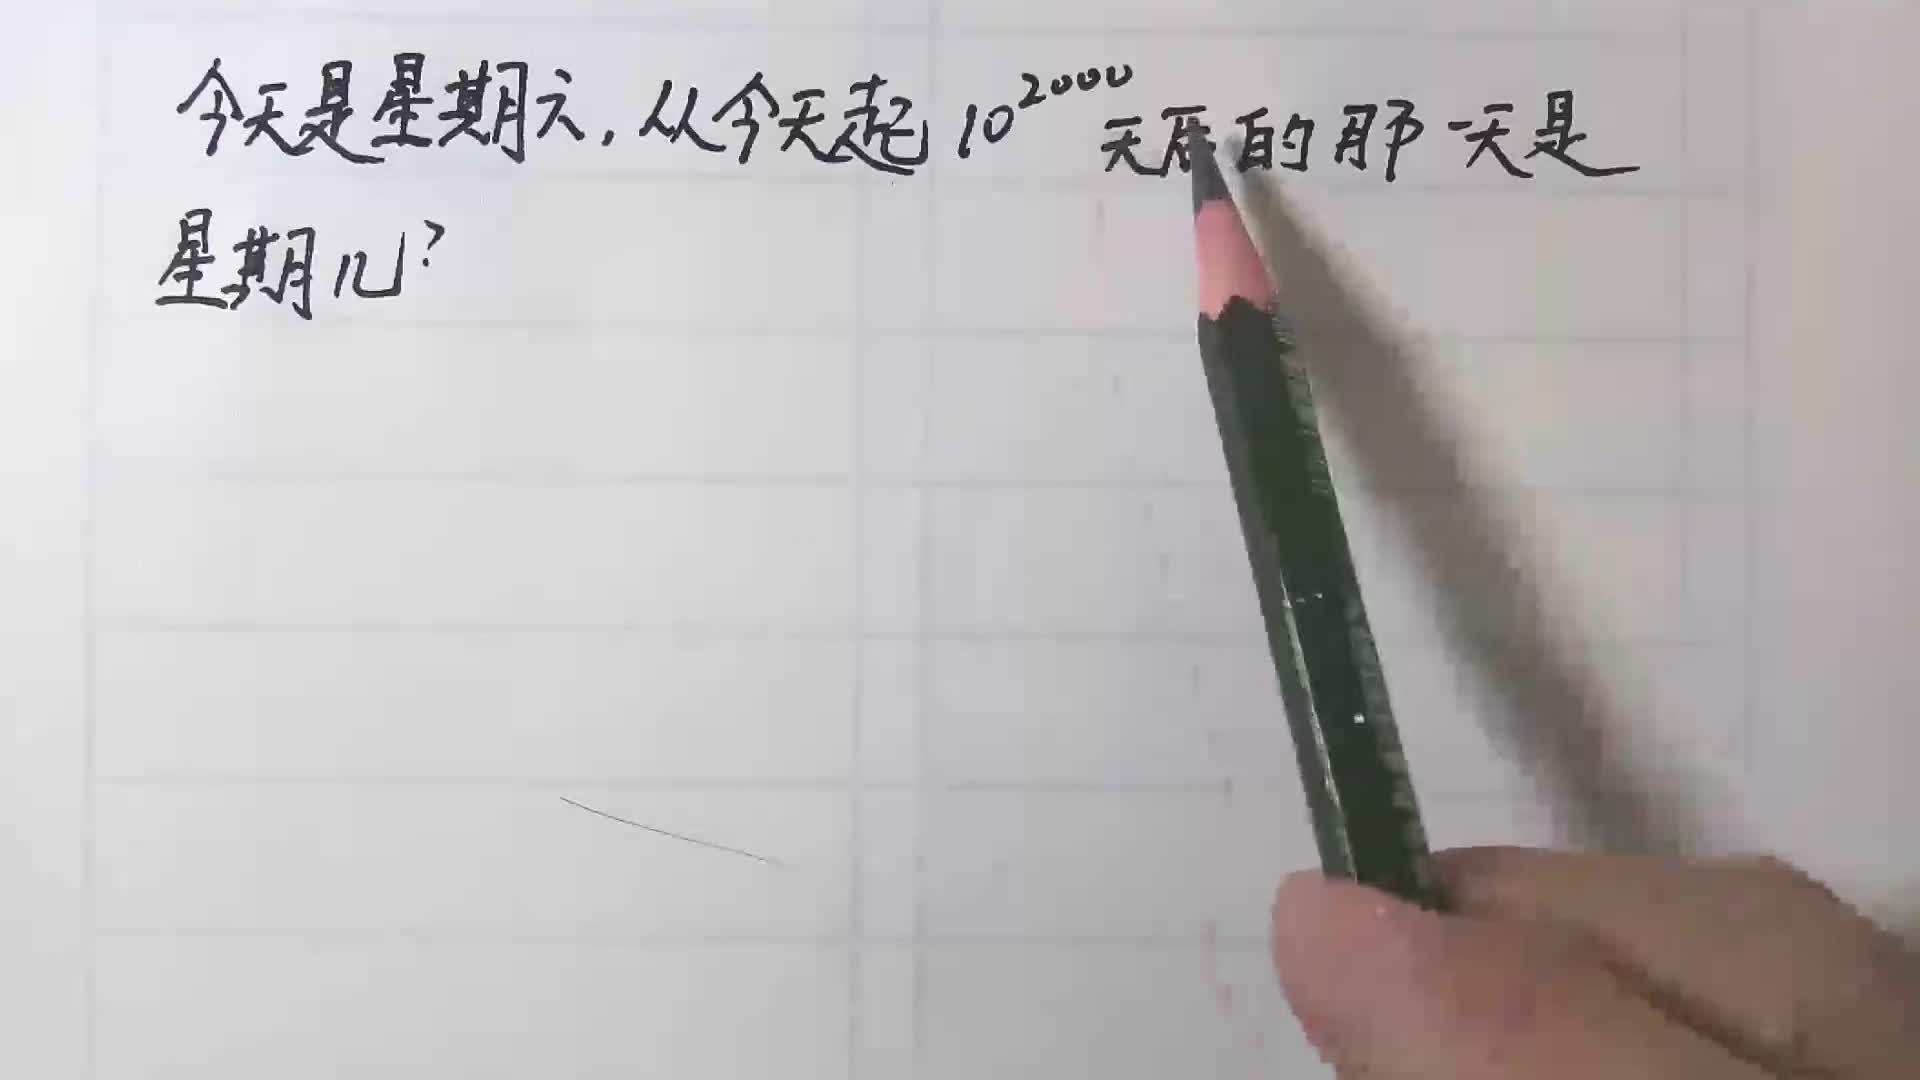 今天是星期六,从今天起10²⁰⁰⁰天后的那一天是
星期几?